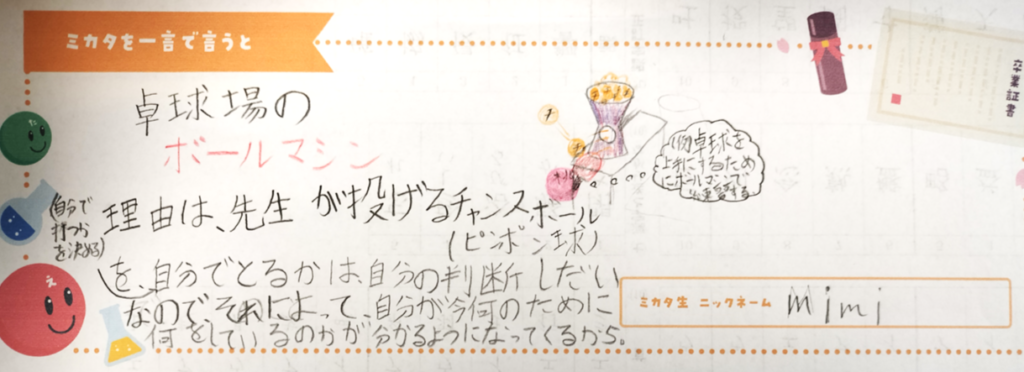 ミカタを一言で言うと
卒業証書
卓球場の
ボールマシン
(例)卓球を
上手にするため
にボールマシンで
(自分で
打つか
を決める)
理由は、先生が投げるチャンスボール
(ピンポン球)
を、自分でとるかは、自分の判断しだい
なので、それによって、自分が今何のために
何をしているのかが分かるようになってくるから。
ミカタ生 ニックネーム mimi
え